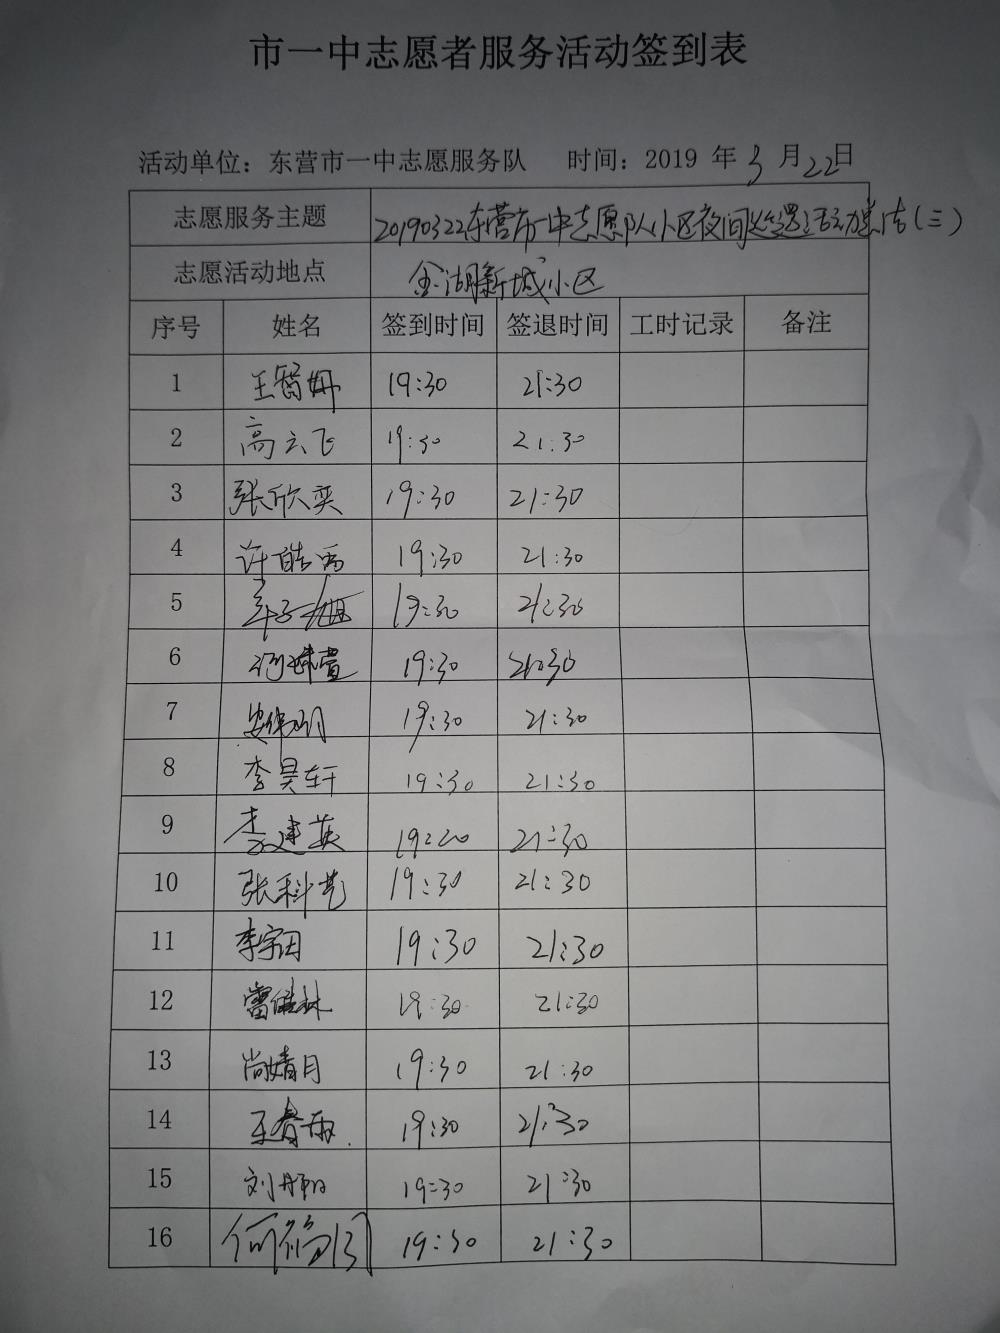 市一中志愿者服务活动签到表
活动单位：东营市一中志愿服务队 时间：2019 年 3 月 22 日
志愿服务主题 20190322东营市一中志愿队小区夜间巡逻活动总结（三）
志愿活动地点 金湖新城小区
序号 姓名 签到时间 签退时间 工时记录 备注
1 王智娜 19:30 21:30
2 高云飞 19:30 21:30
3 张欣奕 19:30 21:30
4 许皓禹 19:30 21:30
5 19:30 21:30
6 19:30 21:30
7 19:30 21:30
8 李昊轩 19:30 21:30
9 李建英 19:20 21:30
10 张科艺 19:30 21:30
11 李宇因 19:30 21:30
12 19:30 21:30
13 尚婧月 19:30 21:30
14 王春雨 19:30 21:30
15 刘丹阳 19:30 21:30
16 19:30 21:30